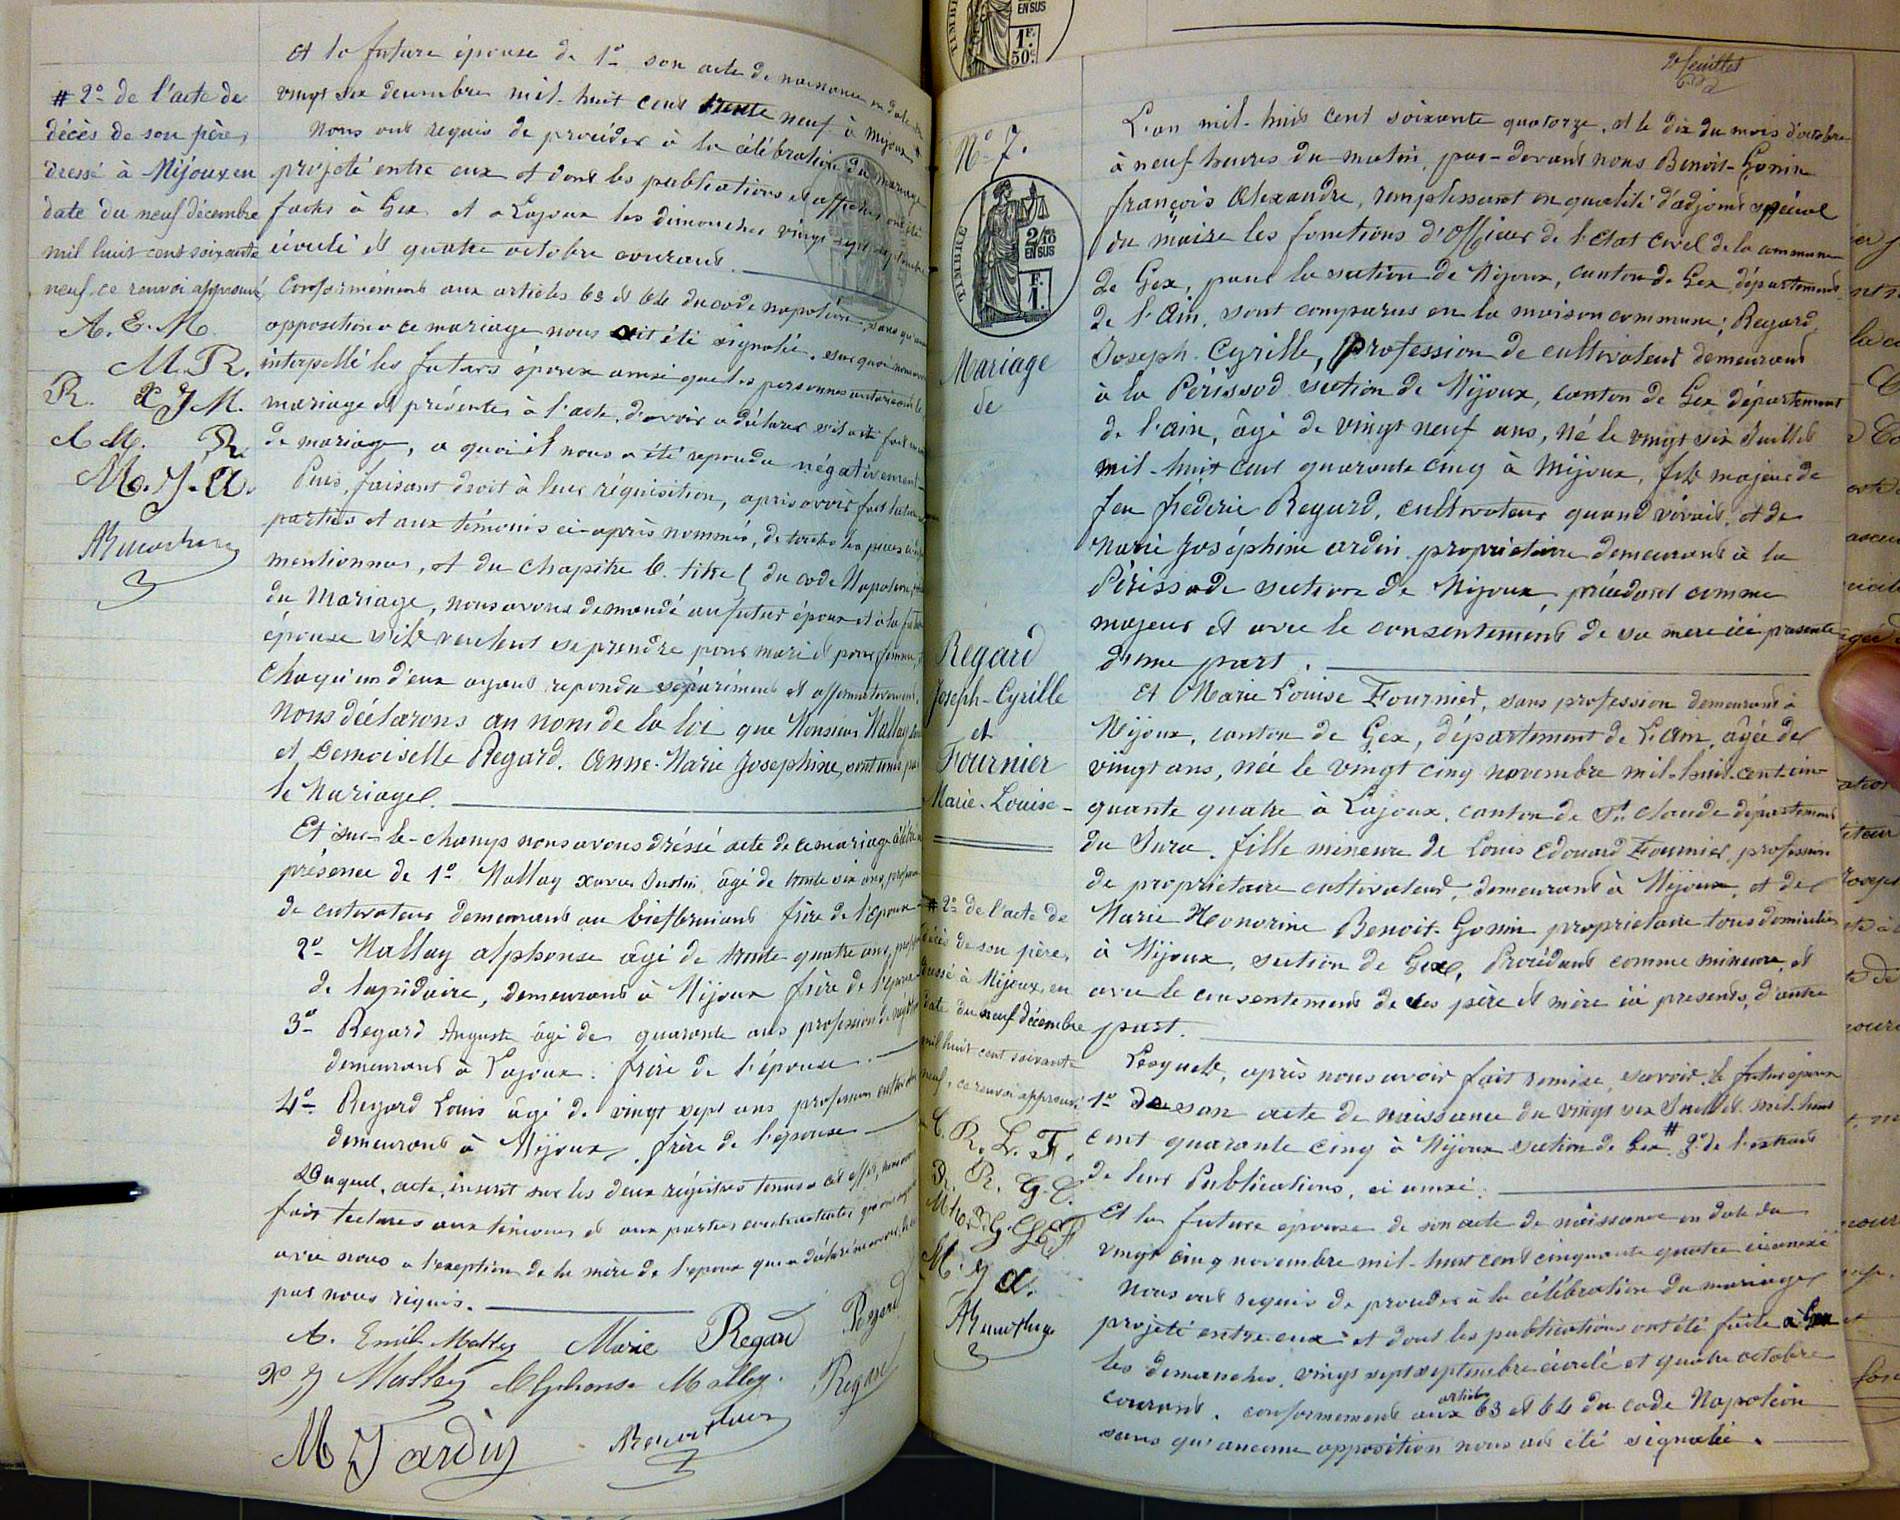 # 2º de l'acte de
décès de son père,
dressé à Mijoux en
date du neuf décembre
mil huit cent soixante
neuf. ce renvoi approuvé
A. E. M.
M. R.
R. X J M.
A M. R.
M. J. A.
et la future épouse de 1º son acte de naissance en date du
vingt six decembre mil-huit cent trente neuf à Mijoux #
Nous ont requis de procéder à la célébration du mariage
projeté entre eux et dont les publications et affiches ont été
faites à Gex et a Lajoux les dimanches vingt sept septembre
écoulé et quatre octobre courant.
Conformément aux articles 63 et 64 du code napoléon, sans qu'aucune
opposition a ce mariage nous ait été signalée. sur quoi nous avons
interpellé les futurs époux ainsi que les personnes autorisant le
mariage et présentes à l'acte, d'avoir a déclarer s'il a été fait un
de mariage, a quoi il nous a été repondu négativement
Puis, faisant droit à leur réquisition, après avoir fait lecture aux
parties et aux témoins ci-après nommés, de toutes les pieces ci-dessus
mentionnées, et du chapitre 6. titre 5 du code Napoléon,
du Mariage, nous avons demandé au futur époux et à la future
épouse s'ils veulent se prendre pour mari et pour femme,
Chaqu'un d'eux ayant repondu séparément et affirmativement,
Nous déclarons au nom de la loi que Monsieur Mallay
et Demoiselle Regard. Anne-Marie Josephine, sont unis par
le Mariage.
Et sur-le-champs nous avons dréssé acte de ce mariage célébré en
présence de 1º Mallay xavier Justin, âgé de trente six ans, profession
de cutivateur demeurant au bief bruiant frère de l'époux
2º Mallay alphonse âgé de trente quatre ans, profession
de lapidaire, demeurant à Mijoux frère de l'époux
3º Regard Auguste âgé de quarante ans profession de
demeurant a Lajoux. frère de l'épouse.
4º Regard Louis âgé de vingt sept ans profession cultivateur
demeurant à Mijoux, frère de l'épouse
Duquel, acte, inscrit sur les deux régistres tenus a cet effet, nous avons
fait lectures aux témoins et aux parties contractantes qui ont signé
avec nous a l'exception de la mère de l'époux que a déclaré ne savoir, de ce
par nous réquis.
A. Emile Malley Marie Regard Regard
X J Malley Alphonse Malley. Regard
M J ardin
2e feuillet
Nº 7.
TIMBRE
2/10
EN SUS
1 F.
50c
Mariage
de
Regard
Joseph-Cyrille
et
Fournier
Marie-Louise-
# 2º de l'acte de
décès de son père,
dressé à Mijoux, en
date du neuf décembre
mil huit cent soixante
neuf, ce renvoi approuvé
C. R. L. F.
R. R. G. C.
M. J
A.
L'an mil-huit cent soixante quatorze, et le dix du mois d'octobre
à neuf heures du matin, par-devant nous Benoit-Gonin
françois Alexandre, remplissant en qualité d'adjoint spécial
du maire les fonctions d'Officier de l'état civil de la commune
de Gex, pour la section de Mijoux, canton de Gex, département
de l'Ain, sont comparus en la maison commune; Regard,
Joseph-Cyrille, Profession de cultivateur demeurant
à la Périssod section de Mijoux, canton de Gex département
de l'ain, âgé de vingt neuf ans, né le vingt six Juillet
mil-huit cent quarante cinq à Mijoux, fils majeur de
feu frederic Regard, cultivateur quand vivait, et de
Marie Joséphine ardin proprietaire demeurant à la
Périssode section de Mijoux, procédant comme
majeur et avec le consentement de sa mere ici présente
d'une part.
Et Marie Louise Fournier, sans profession demeurant à
Mijoux, canton de Gex, département de L'ain, âgée de
vingt ans, née le vingt cinq novembre mil-huit-cent cin-
quante quatre à Lajoux, canton de St Claude département
du Jura. fille mineure de Louis Edouard Fournier, profession
de proprietaire cultivateur, demeurant à Mijoux, et de
Marie Honorine Benoit-Gonin proprietaire tous domiciliés
à Mijoux, section de Gex, Procédant comme mineure, et
avec le consentement de ses père et mère ici presents, d'autre
part.
Lesquels, après nous avoir fait remise, savoir, le futur époux
1º De son acte de naissance du vingt six Juillet mil-huit
cent quarante cinq à Mijoux section de Gex # 3º de l'extrait
de leur Publications, ci annexé.
Et la future épouse de son acte de naissance en date du
vingt cinq novembre mil-huit cent cinquante quatre ci annexé
Nous ont requis de procéder à la célébration du mariage
projeté entre eux et dont les publications ont été faite à Gex
les demanches, vingt sept septembre écoulé et quatre octobre
courant. conformement aux articles 63 et 64 du code Napoléon
sans qu'aucune opposition nous ait été signalée.